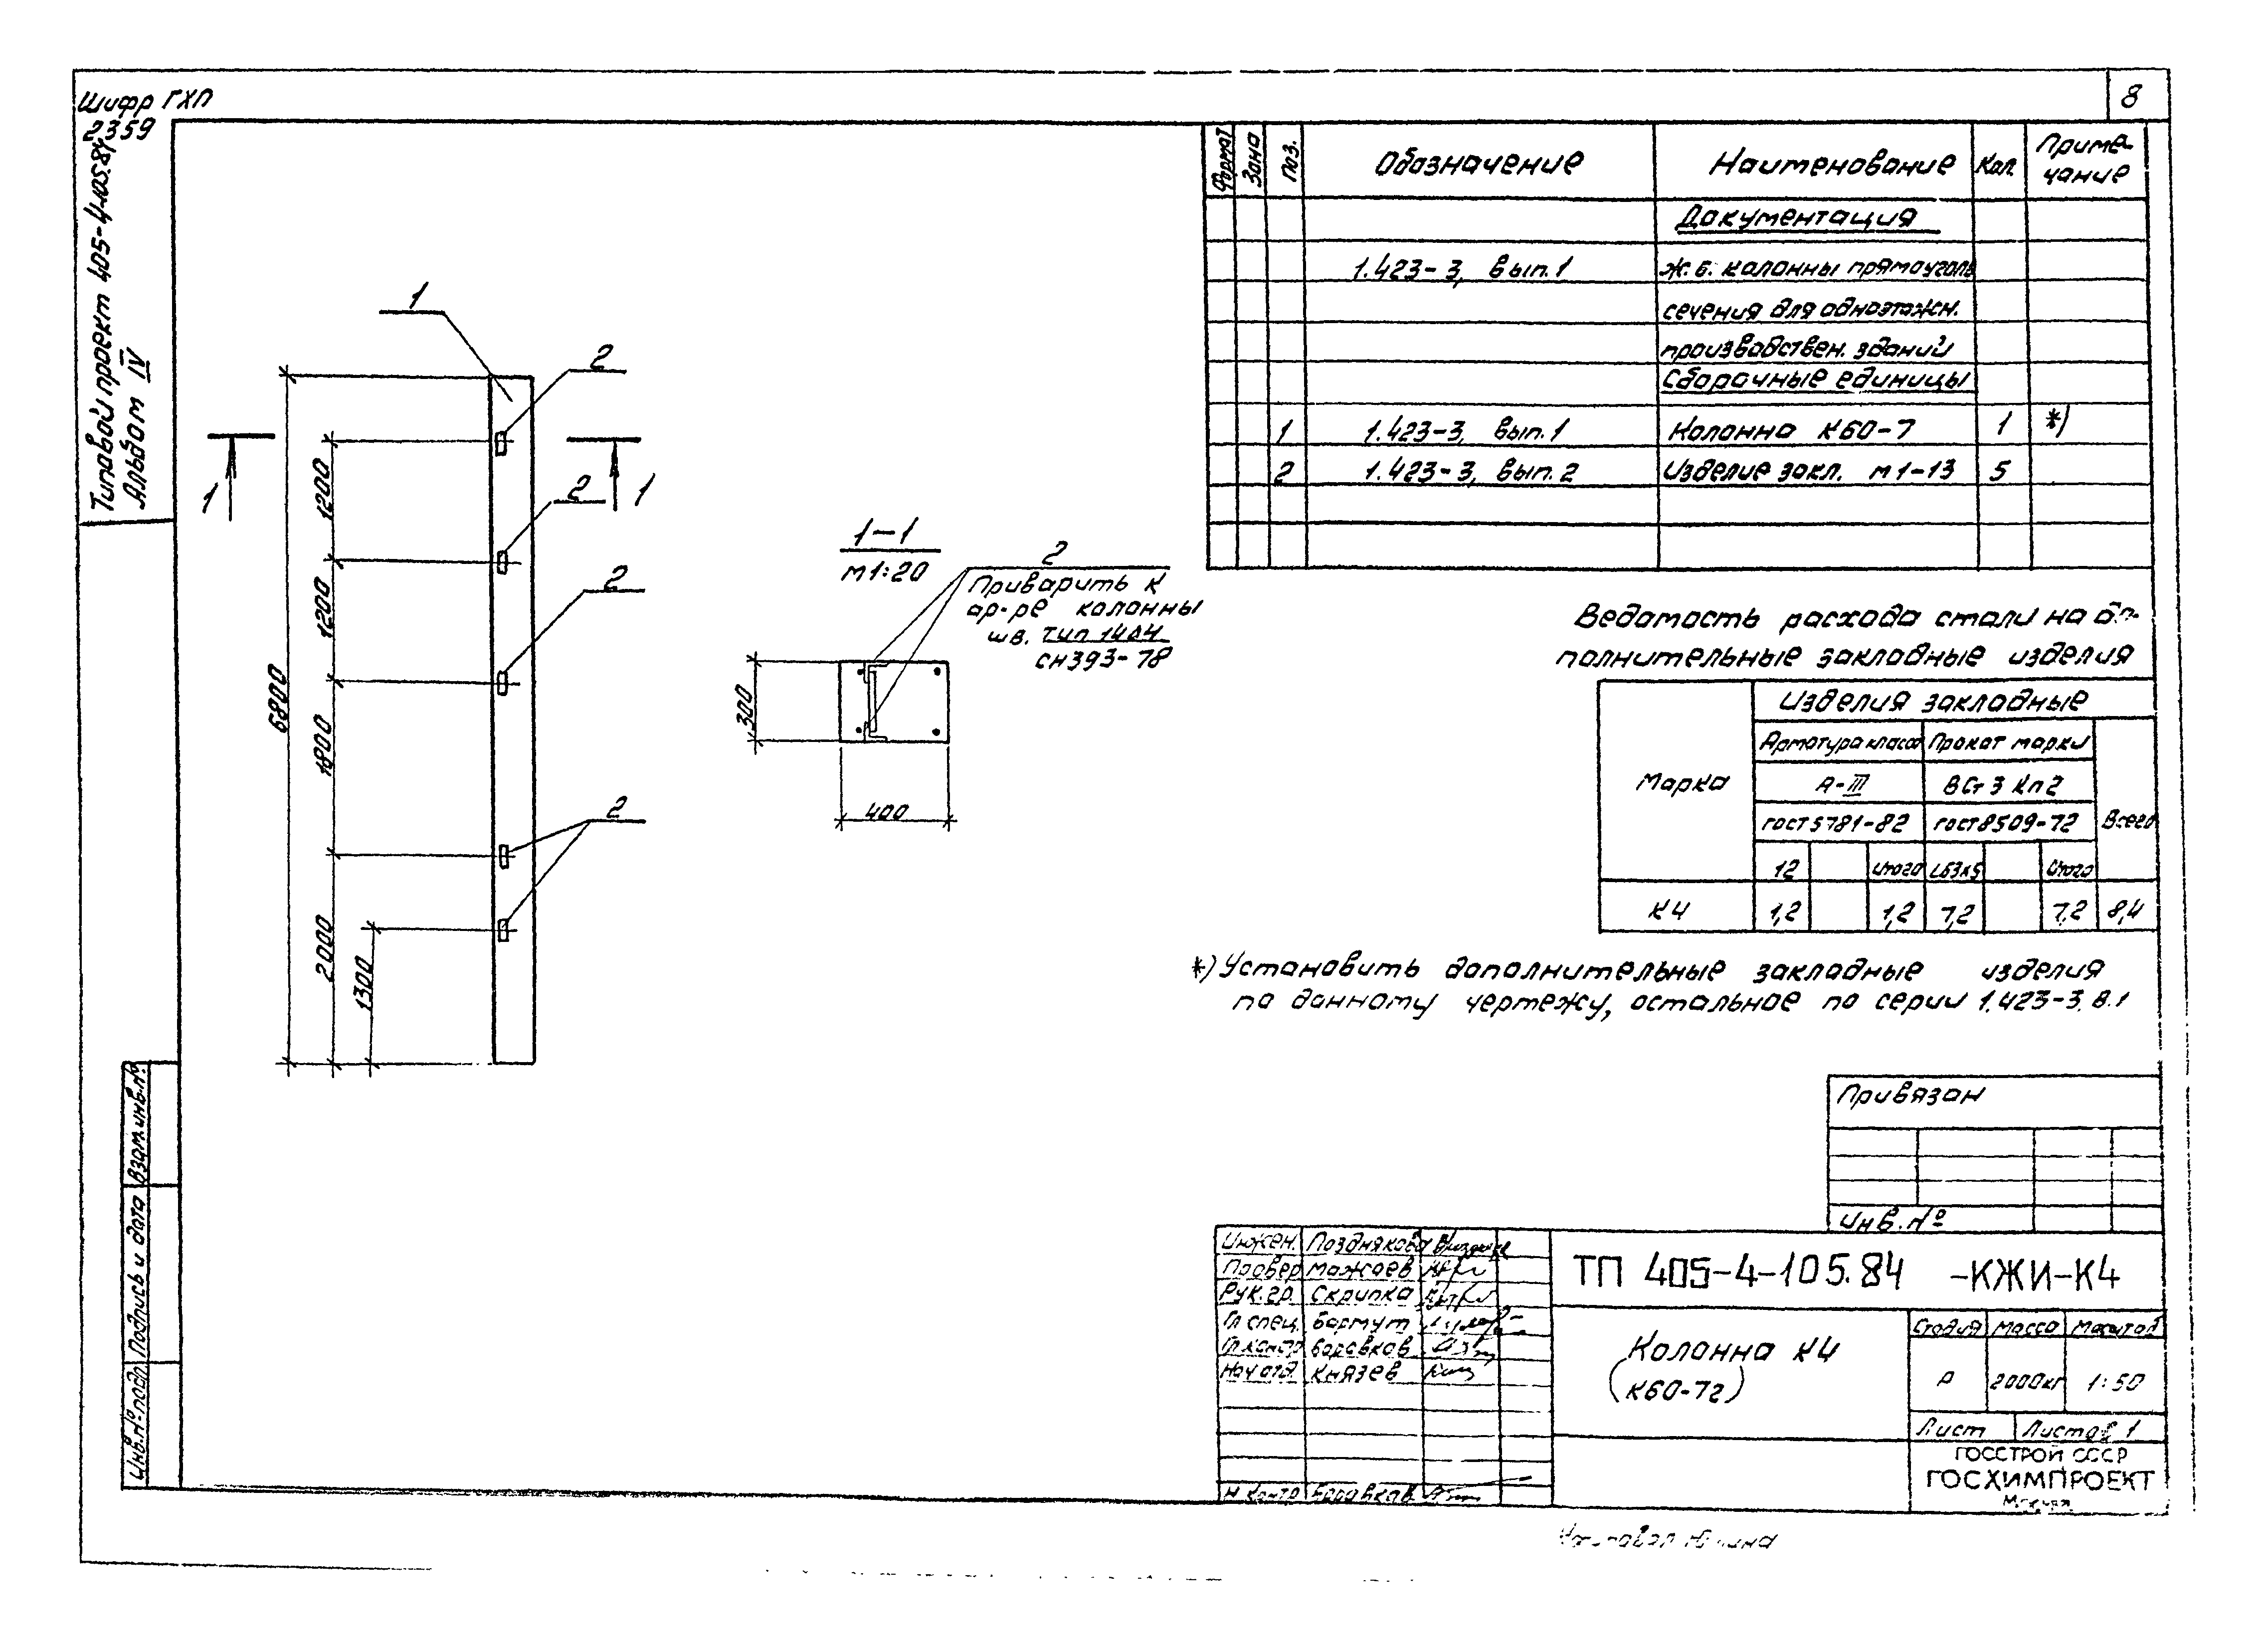 8
Шифр ГХП
2359
Типовой проект 405-4-105.84
Альбом IV
1
2
2
2
2
1 1
6800
1200
1200
1800
2000
1300
1-1
М1:20
2
Приварить к
ар-ре колонны
шв. тип 14Δ4
СН393-78
300
400
Формат Зона Поз. Обозначение Наименование Кол. Приме-
чание
Документация
1.423-3, вып.1 Ж.б. колонны прямоуголь
сечения для одноэтажн.
производствен. зданий
Сборочные единицы
1 1.423-3, вып.1 Колонна К60-7 1 *)
2 1.423-3, вып.2 Изделие закл. М1-13 5
Ведомость расхода стали на до-
полнительные закладные изделия
Марка Изделия закладные
Арматура класса Прокат марки Всего
А-III ВСт 3 Кп2
ГОСТ 5781-82 ГОСТ 8509-72
12 Итого L63х5 Итого
К4 1,2 1,2 7,2 7,2 8,4
*) Установить дополнительные закладные изделия
по данному чертежу, остальное по серии 1.423-3. В.1
Привязан
Инв.№
Взам.инв.№
Подпись и дата
Инв.№ подл.
Инжен. Позднякова
Провер Мажаев
Рук.гр. Скрипка
Гл спец. Бармут
Гл контр Боровков
Нач отд. Князев
Н контр Боровков
ТП 405-4-105.84 -КЖИ-К4
Колонна К4
(К60-7г)
Стадия Масса Масштаб
Р 2000кг 1:50
Лист Листов 1
ГОССТРОЙ СССР
ГОСХИМПРОЕКТ
Москва